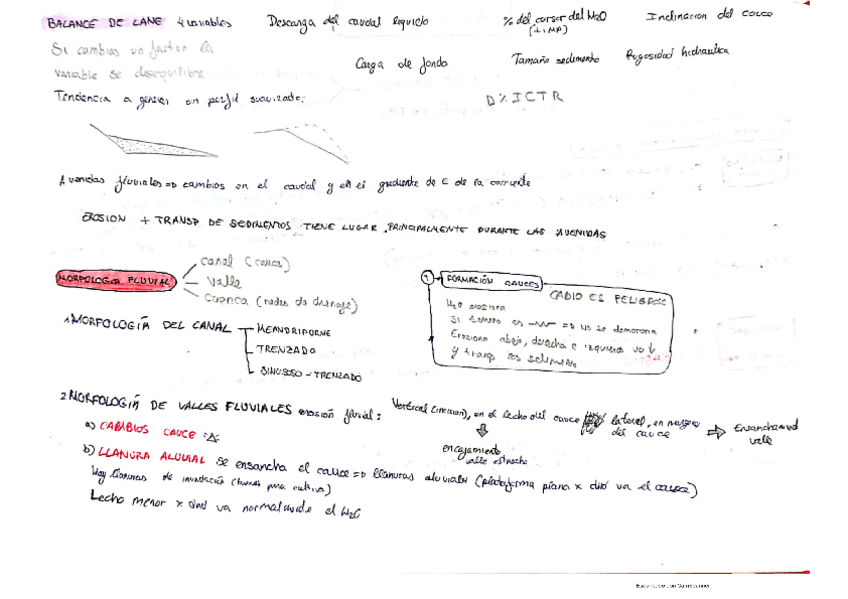 BALANCE DE LANE 4 variables
Descarga del caudal liquido
% del cursor del H2O
(+ IMP)
Inclinacion del cauce
Si cambias un factor la
variable se desequilibra
Carga de fondo
Tamaño sedimento
Rugosidad hidraulica
Tendencia a generar un perfil suavizado:
D % I C T R
Avenidas fluviales => cambios en el caudal y en el gradiente de E de la corriente
EROSION + TRANSP DE SEDIMENTOS TIENE LUGAR PRINCIPALMENTE DURANTE LAS AVENIDAS
MORFOLOGIA FLUVIAL
canal (cauce)
Valle
Cuenca (redes de drenaje)
1 FORMACIÓN CAUCES
H2O erosiona
Erosiona abajo, derecha e izquierda
1. MORFOLOGÍA DEL CANAL
MEANDRIFORME
TRENZADO
SINUOSO - TRENZADO
2 MORFOLOGIA DE VALLES FLUVIALES erosión fluvial:
Vertical (incision), en el lecho del cauce
lateral, en
del cauce
Ensancha
valle
encajamiento
valle estrecho
a) CAMBIOS CAUCE
b) LLANURA ALUVIAL se ensancha el cauce => llanuras aluviales (plataforma plana x dnd va el cauce)
Hay llanuras de inundación (buenas para cultivo)
Lecho menor x dnd va normalmente el H2O
Escaneado con CamScanner